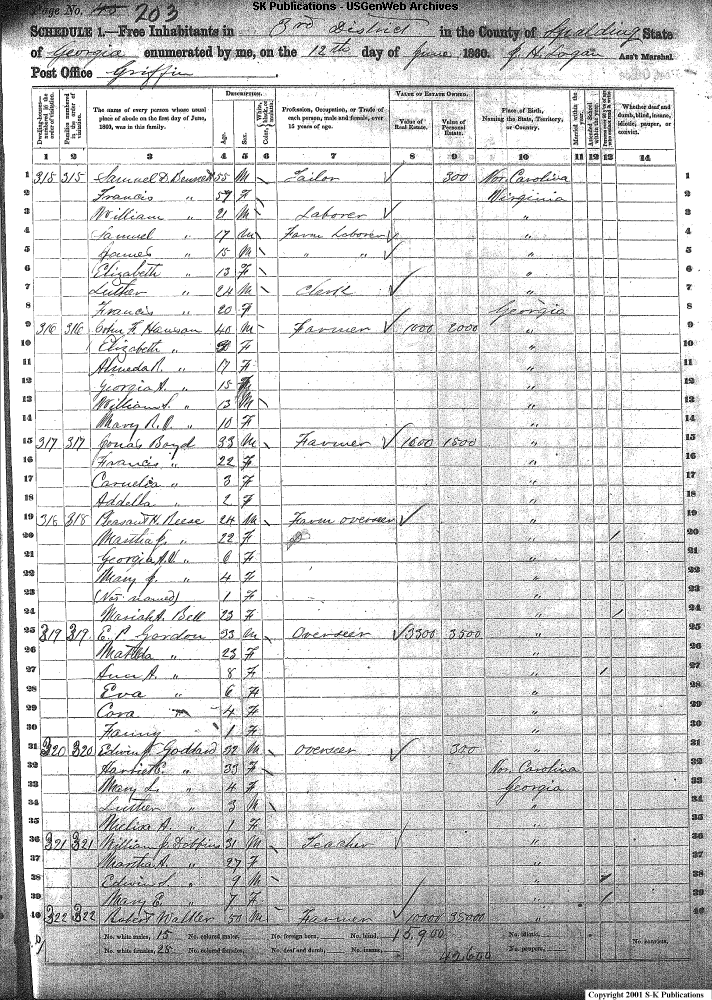 SK Publications - USGenWeb Archives
Page No. 45 203
SCHEDULE 1.—Free Inhabitants in 3rd District in the County of Spalding State
of Georgia enumerated by me, on the 12th day of June 1860. J. H. Logan Ass't Marshal.
Post Office Griffin
Dwelling-houses—numbered in the order of visitation.
Families numbered in the order of visitation.
The name of every person whose usual place of abode on the first day of June, 1860, was in this family.
DESCRIPTION.
Age.
Sex.
Color, White, black, or mulatto.
Profession, Occupation, or Trade of each person, male and female, over 15 years of age.
VALUE OF ESTATE OWNED.
Value of Real Estate.
Value of Personal Estate.
Place of Birth, Naming the State, Territory, or Country.
Married within the year.
Attended School within the year.
Whether deaf and dumb, blind, insane, idiotic, pauper, or convict.
1 2 3 4 5 6 7 8 9 10 11 12 13 14
1 315 315 Samuel D. Bennett 55 M Tailor 300 Nor. Carolina 1
2 Francis " 59 F Virginia 2
3 William " 21 M Laborer " 3
4 Samuel " 17 M Farm Laborer " 4
5 James " 15 M " " " 5
6 Elizabeth " 13 F " 6
7 Luther " 24 M Clerk " 7
8 Francis " 20 F Georgia 8
9 316 316 John F. 40 M Farmer 1000 2000 " 9
10 Elizabeth " F " 10
11 Almeda R. " 17 F " 11
12 Georgia A. " 15 F " 12
13 William S. " 13 M " 13
14 Mary R. " 10 F " 14
15 317 317 Jonas Boyd 33 M Farmer 1600 1500 " 15
16 Francis " 22 F " 16
17 Cornelia " 3 F " 17
18 Addella 2 F " 18
19 318 318 Pleasant H. Reese 24 M Farm overseer " 19
20 Martha " 22 F " / 20
21 Georgia A. V. " 6 F " 21
22 Mary J. " 4 F " 22
23 (Not named) 1 F " 23
24 Mariah A. Bell 23 F " / 24
25 319 319 E. P. Gordon 33 M Overseer 3300 3500 " 25
26 Matilda " 23 F " 26
27 Ann A. " 8 F " / 27
28 Eva " 6 F " 28
29 Cora " 4 F " 29
30 Fanny " 1 F " 30
31 320 320 Edwin Goddard 22 M overseer 300 " 31
32 Harriet E. " 33 F Nor. Carolina 32
33 Mary L. " 4 F Georgia 33
34 Luther " 3 M " 34
35 Melisa A. " 1 F " 35
36 321 321 William J. Dobbins 31 M Teacher " 36
37 Martha A. " 27 F " 37
38 Edwin S. " 9 M " / 38
39 Mary E. " 7 F " / 39
40 322 322 Robert Walker 50 M Farmer 10000 35000 " 40
No. white males, 15 No. colored males, No. foreign born, No. blind, 15,900 No. idiotic,
No. white females, 25 No. colored females, No. deaf and dumb, No. insane, 42,600 No. paupers, No. convicts,
Copyright 2001 S-K Publications